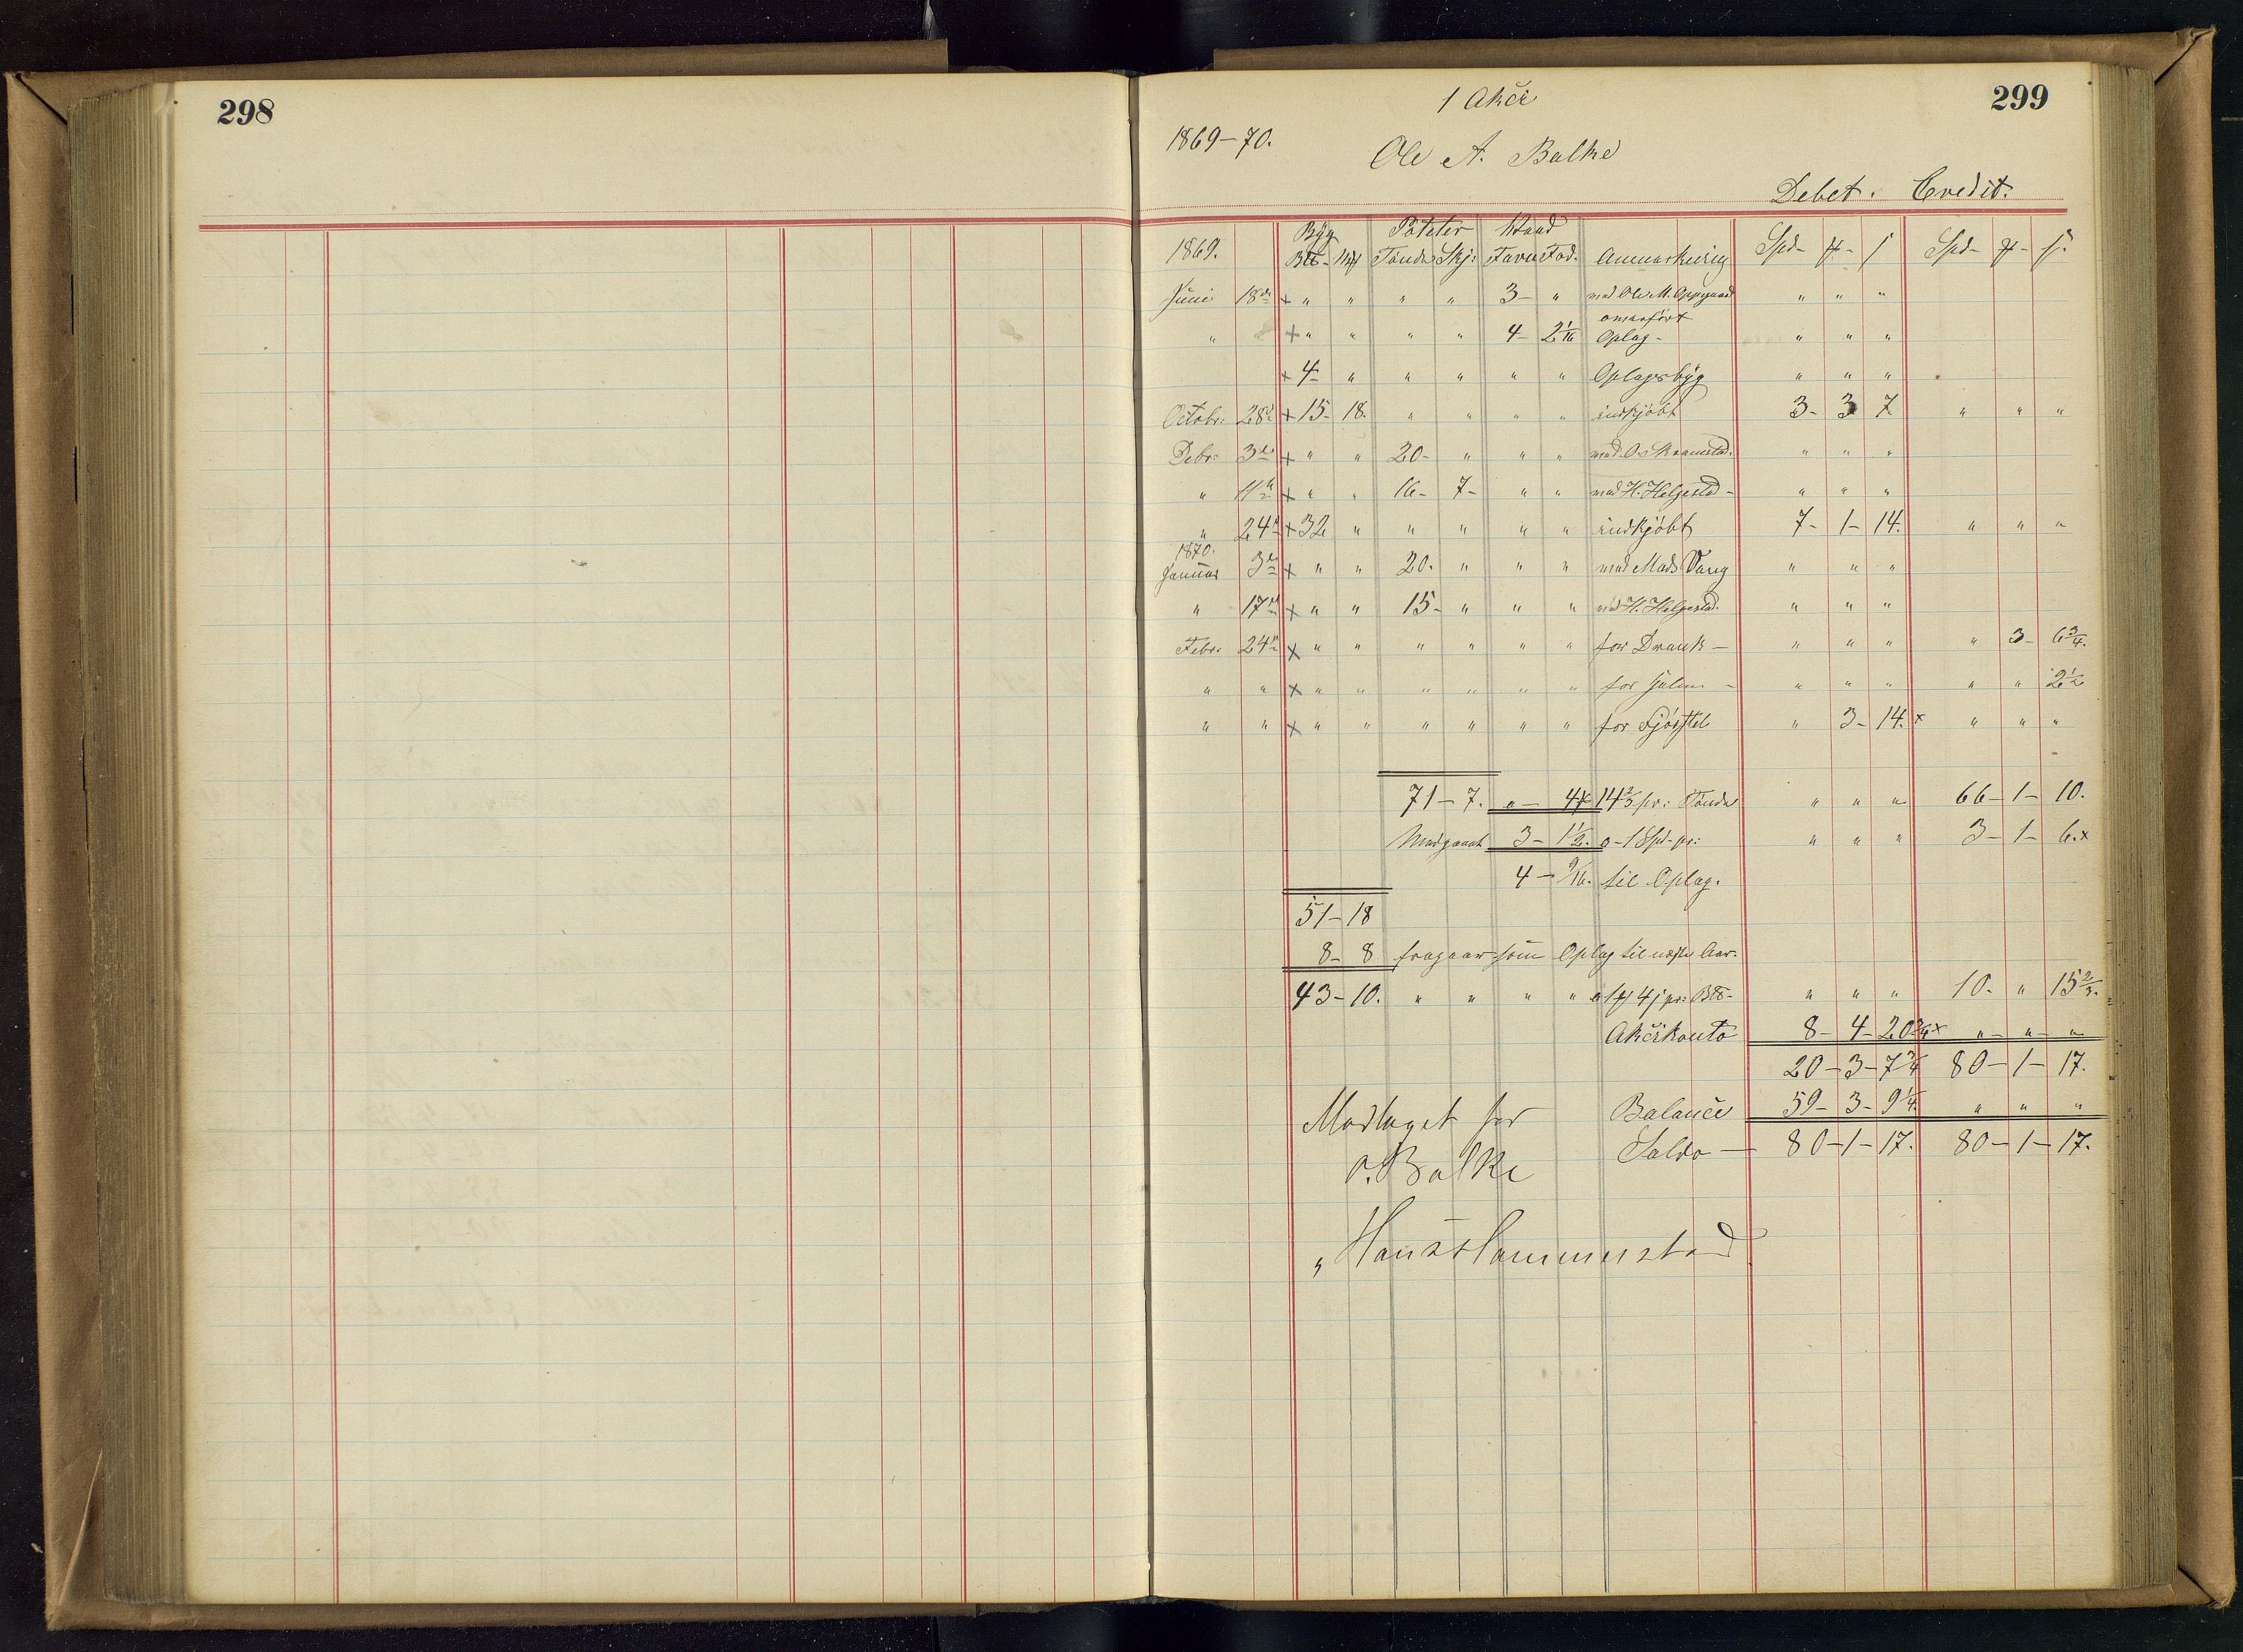 298
299
1 Akci
1869-70.
Ole A. Balke
Debet. Credit.
Byg Poteter Vand
1869. Btt- Mk Tønder Skj: Favn Fod. Anmærkning Spd- - Spd- -
Juni 18de × " " " " 3- " med Ole M. Oppgaard " " "
omanført
" × " " " " 4- 2 1/16 Oplag- " " "
× 4- " " " " " Oplagsbyg " " "
Octobr: 28de × 15- 18. " " " " indkjøbt 3- 3 7 " " "
Debr: 3de × " " 20- " " " med O. Kramstad. " " "
" 11te × " " 16- 7- " " med H. Helgestad- " " "
" 24de × 32 " " " " " indkjøbt 7- 1- 14. " " "
1870.
Januar 3de × " " 20. " " " med Mads Vang " " "
" 17de × " " 15- " " " med H. Helgestad. " " "
Febr: 24de × " " " " " " for Drank- " " " " 3- 6 3/4.
" " × " " " " " " for - " " " " " 2 1/2
" " × " " " " " " for " 3- 14. × " " "
71- 7. "- 14 2/3 pr: Tønde " " " 66- 1- 10.
Medgaaet 3- 1 1/2. a- 1 Spd- pr: " " " 3- 1- 6. ×
4- 9/16. til Oplag.
51- 18
8- 8 fragaar som Oplag til næste Aar-
43- 10. " " " " a 1 4 pr: Btt- " " " 10. " 15 2/3.
Akcikonto 8- 4- 20 3/4 × "- "- "
20- 3- 7 3/4 80- 1- 17.
Balance 59- 3- 9 1/4. " " "
Saldo- 80- 1- 17. 80- 1- 17.
Modtaget for
O. Balke
"Hans Hammerstad